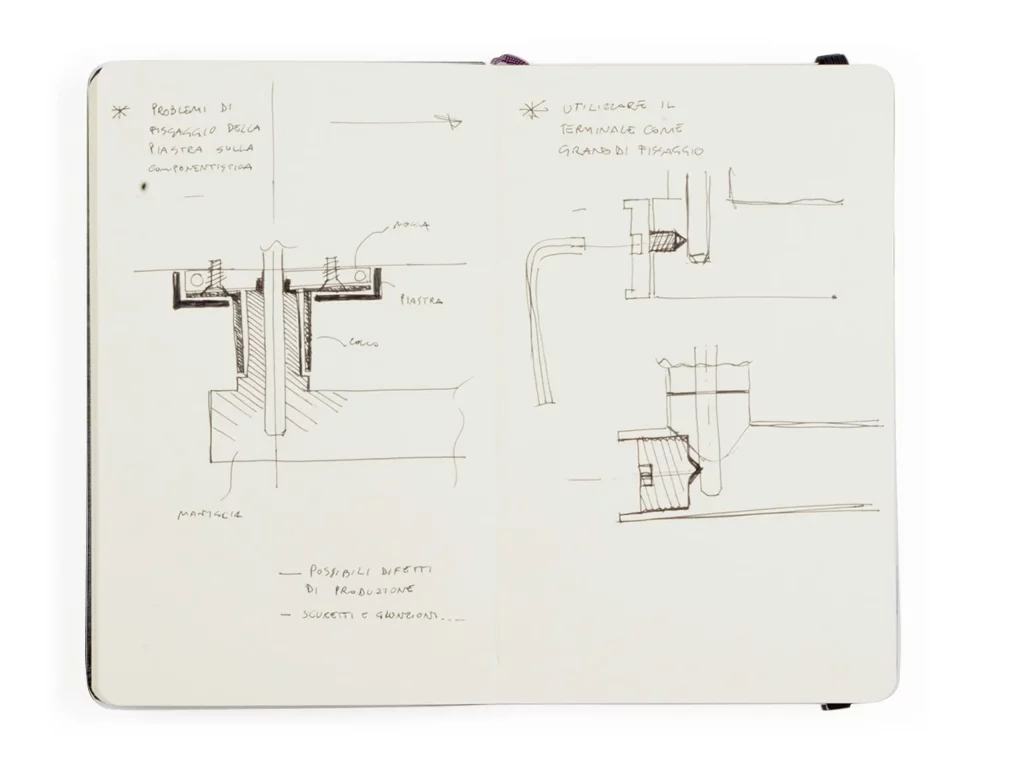 PROBLEMI DI
FISSAGGIO DELLA
PIASTRA SULLA
COMPONENTISTICA
MOLLA
PIASTRA
COLLO
MANIGLIA
— POSSIBILI DIFETTI
DI PRODUZIONE
— SCURETTI E GIUNZIONI...
UTILIZZARE IL
TERMINALE COME
GRANO DI FISSAGGIO